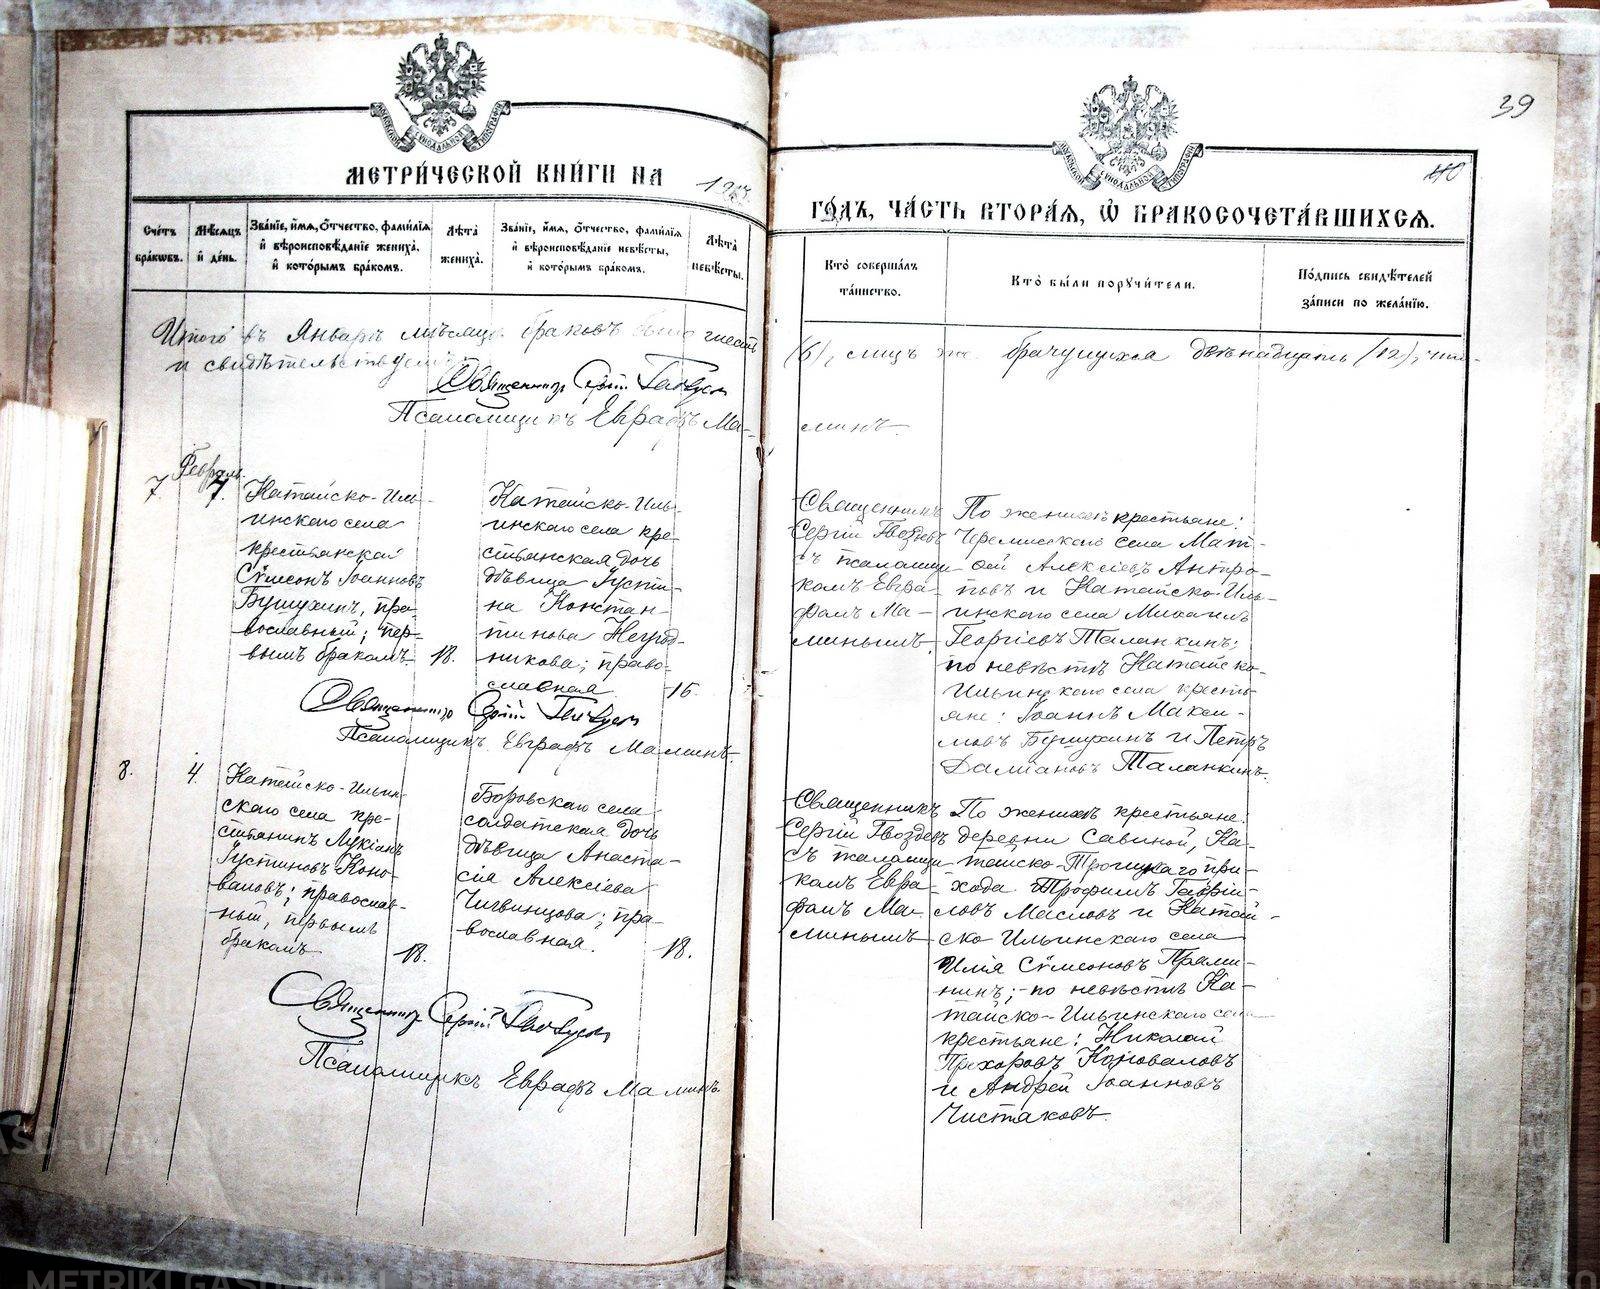 39
40
МЕТРИ́ЧЕСКОЙ КНИ́ГИ НА
ГО́ДЪ, ЧА́СТЬ ВТОРА́Я, Ѿ БРАКОСОЧЕТА́ВШИХСЯ.
Сче́тъ бра́кѡвъ.
Мѣ́сяцъ и де́нь.
Зва́нїе, и́мя, ѻ́тчество, фами́лїя и вѣроисповѣ́данїе жениха́, и кото́рымъ бра́комъ.
Лѣ́та жениха́.
Зва́нїе, и́мя, ѻ́тчество, фами́лїя и вѣроисповѣ́данїе невѣ́сты, и кото́рымъ бра́комъ.
Лѣ́та невѣ́сты.
Кто̀ соверша́лъ та́инство.
Кто̀ бы́ли поручи́тели.
По́дпись свидѣ́телей за́писи по жела́нїю.
Итого въ Январѣ мѣсяцѣ браковъ было шесть
(6), лицъ же брачущихся двѣнадцать (12),
и свидѣтельствуемъ
Священникъ Сергій Гвоздевъ
Псаломщикъ Евграфъ Ма-
минъ.
Февраль
7
4.
Катайско-Иль-
инскаго села
крестьянскій
Сѵмеонъ Іоанновъ
Бушухинъ, пра-
вославный; пер-
вымъ бракомъ
18.
Катайско-Иль-
инскаго села кре-
стьянская дочь
дѣвица Іусти-
на Констан-
тинова Негод-
никова; право-
славная
16.
Священникъ
Сергій Гвоздевъ
съ псаломщи-
комъ Евгра-
фомъ Ма-
минымъ.
По женихѣ крестьяне:
Черемисскаго села Мат-
ѳей Алексіевъ Антро-
повъ и Катайско-Иль-
инскаго села Михаилъ
Георгіевъ Таланкинъ;
по невѣстѣ Катайско-
Ильинскаго села кресть-
яне: Іоаннъ Макси-
мовъ Бушухинъ и Петръ
Даміановъ Таланкинъ.
Священникъ Сергій Гвоздевъ
Псаломщикъ Евграфъ Маминъ.
8.
4.
Катайско-Ильин-
скаго села кре-
стьянинъ Лукіанъ
Іустиновъ Коно-
валовъ; православ-
ный, первымъ
бракомъ
18.
Боровскаго села
солдатская дочь
дѣвица Анаста-
сія Алексіева
Чигвинцова; пра-
вославная.
18.
Священникъ
Сергій Гвоздевъ
съ псаломщи-
комъ Евгра-
фомъ Ма-
минымъ
По женихѣ крестьяне:
деревни Савиной, Ка-
тайско-Троицкаго при-
хода Трофимъ Гаврі-
ловъ Масловъ и Катай-
ско Ильинскаго села
Илія Сѵмеоновъ Прами-
нинъ; по невѣстѣ Ка-
тайско-Ильинскаго села
крестьяне: Николай
Прохоровъ Коноваловъ
и Андрей Іоанновъ
Чистяковъ.
Священникъ Сергій Гвоздевъ
Псаломщикъ Евграфъ Маминъ.
METRIKI.GASO-URAL.RU